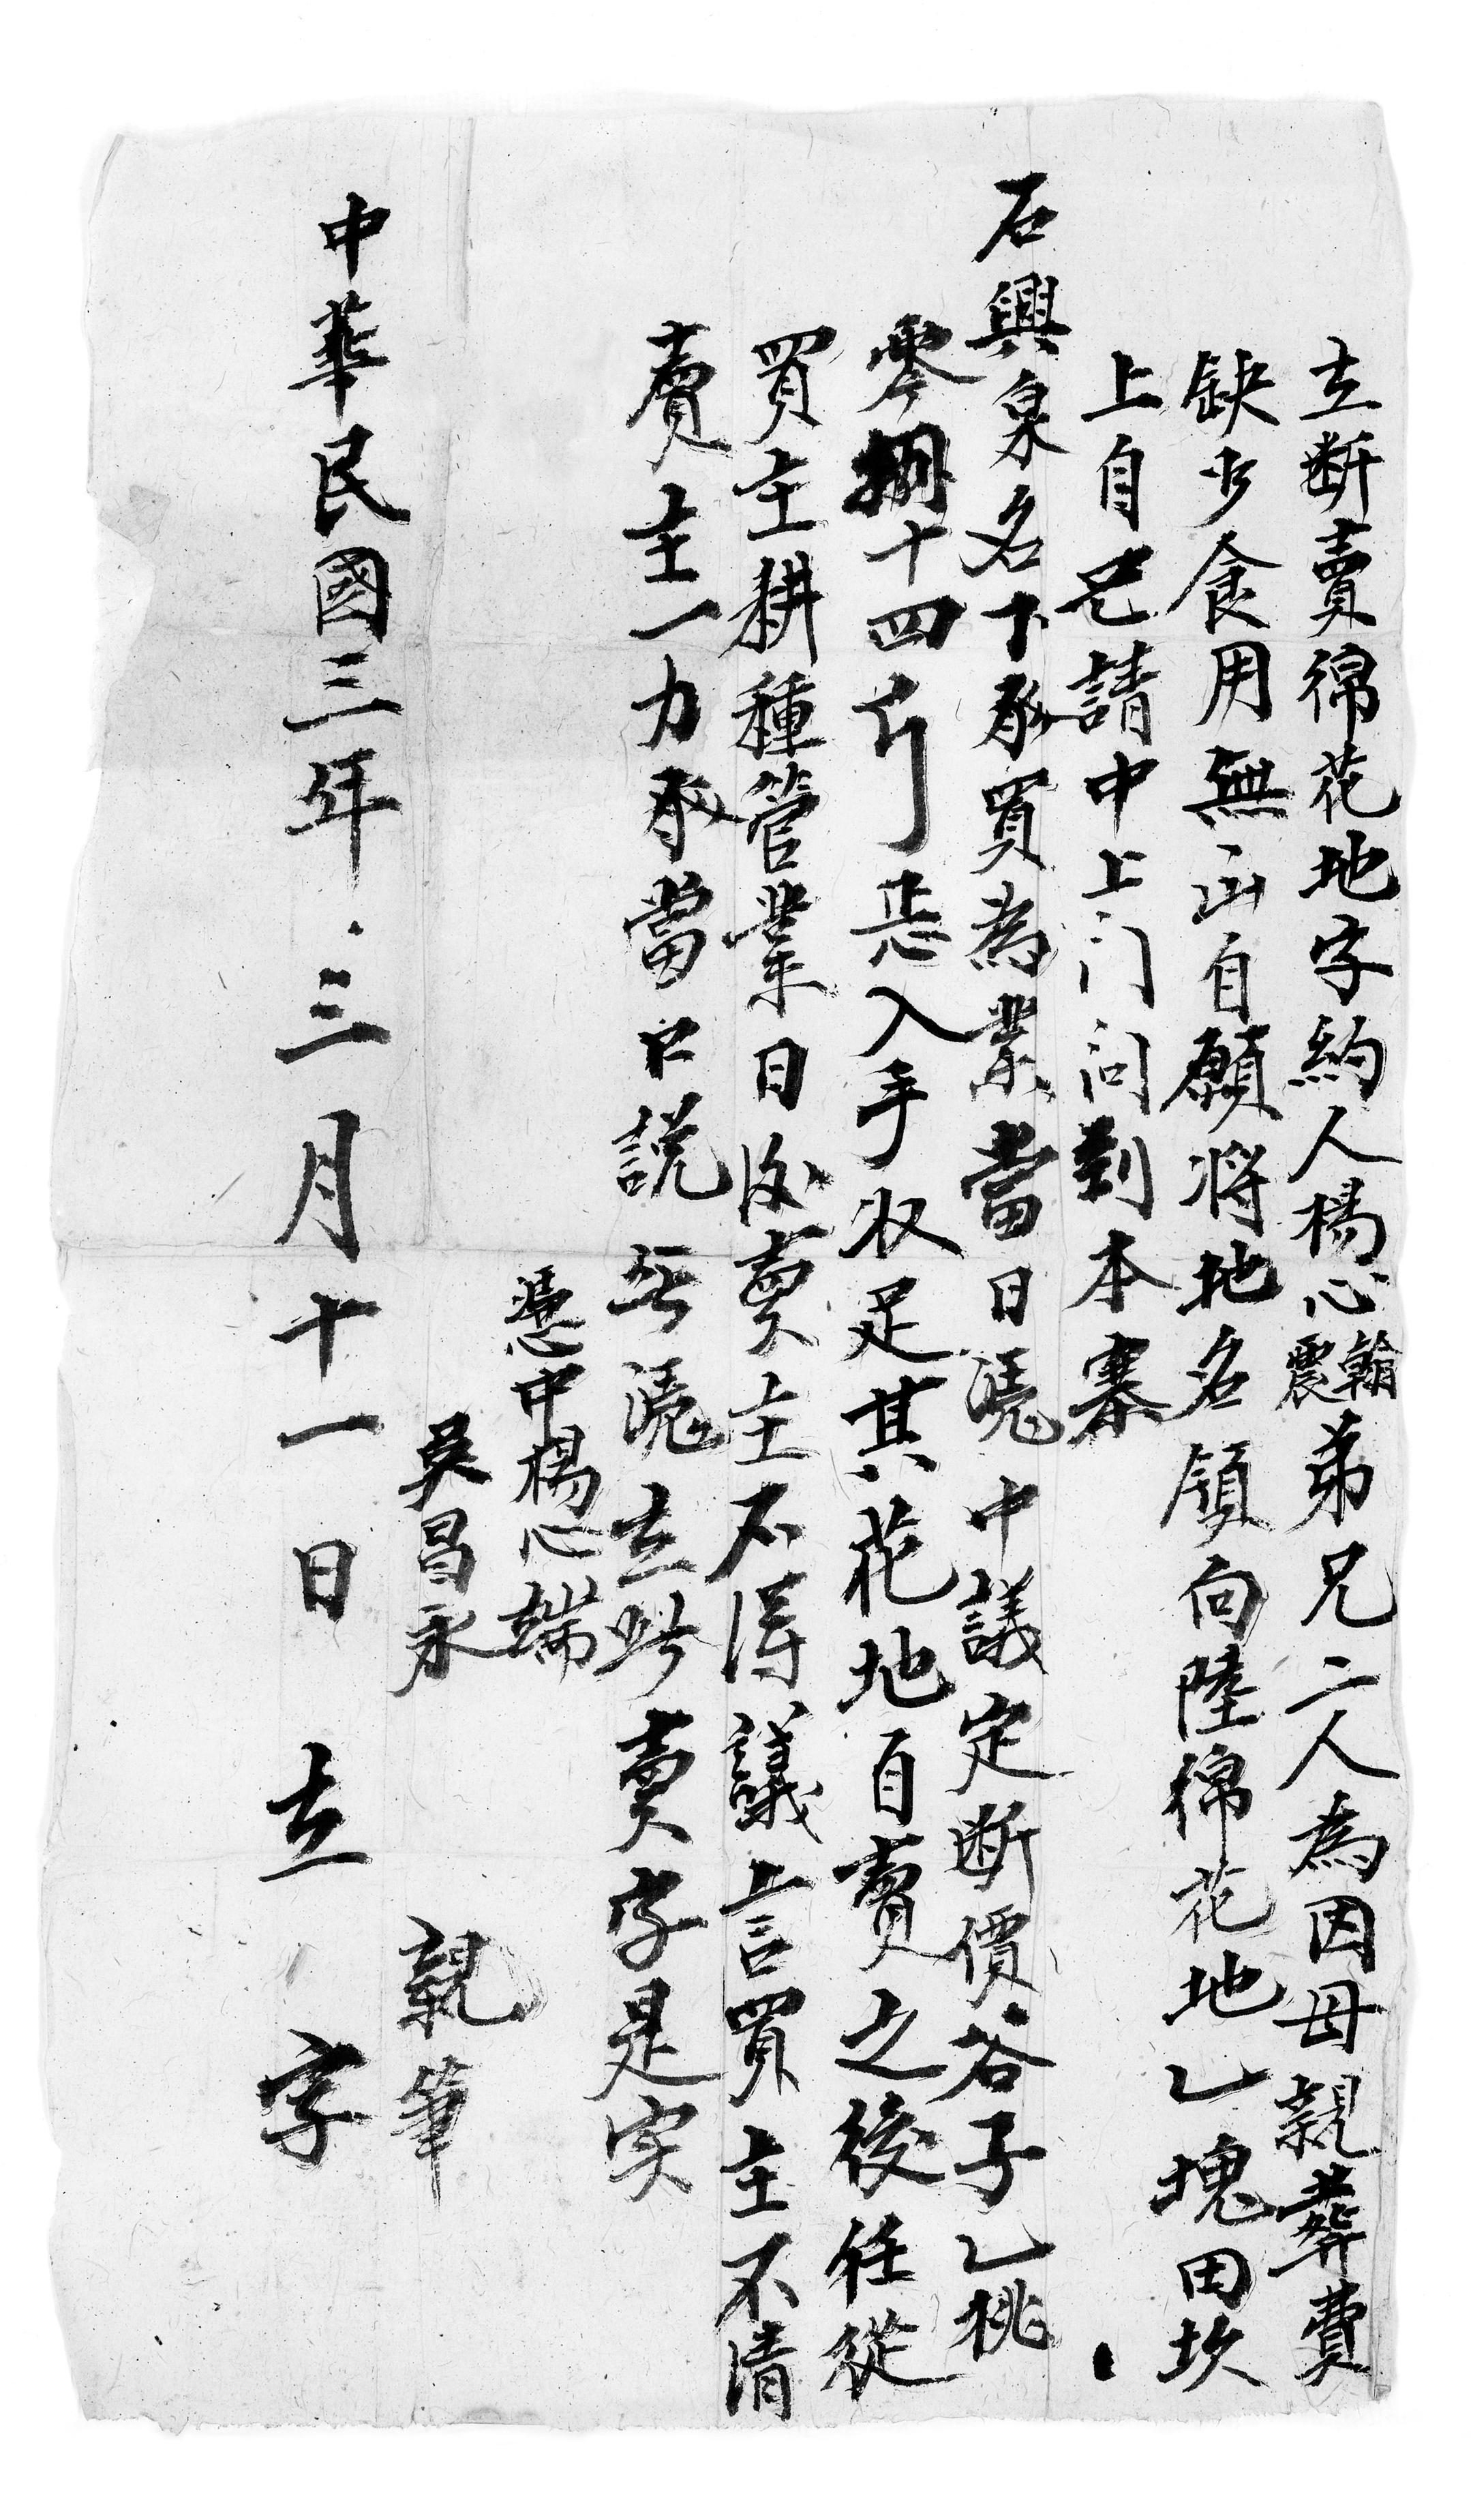 立断賣綿花地字約人楊心翰震弟兄二人為因母親葬費
缺少食用無山自願將地名領向陸綿花地乙塊田坎
上自己請中上门问到本寨
石興泉名下承買為業當日凭中議定断價谷子乙桃
零捌十四斤悉入手収足其花地自賣之後任從
買主耕種管業日後賣主不得議言買主不清
賣主一力承當口説無凭立此賣字是实
憑中楊心端
吳昌永 親筆
中華民國三年三月十一日 立 字